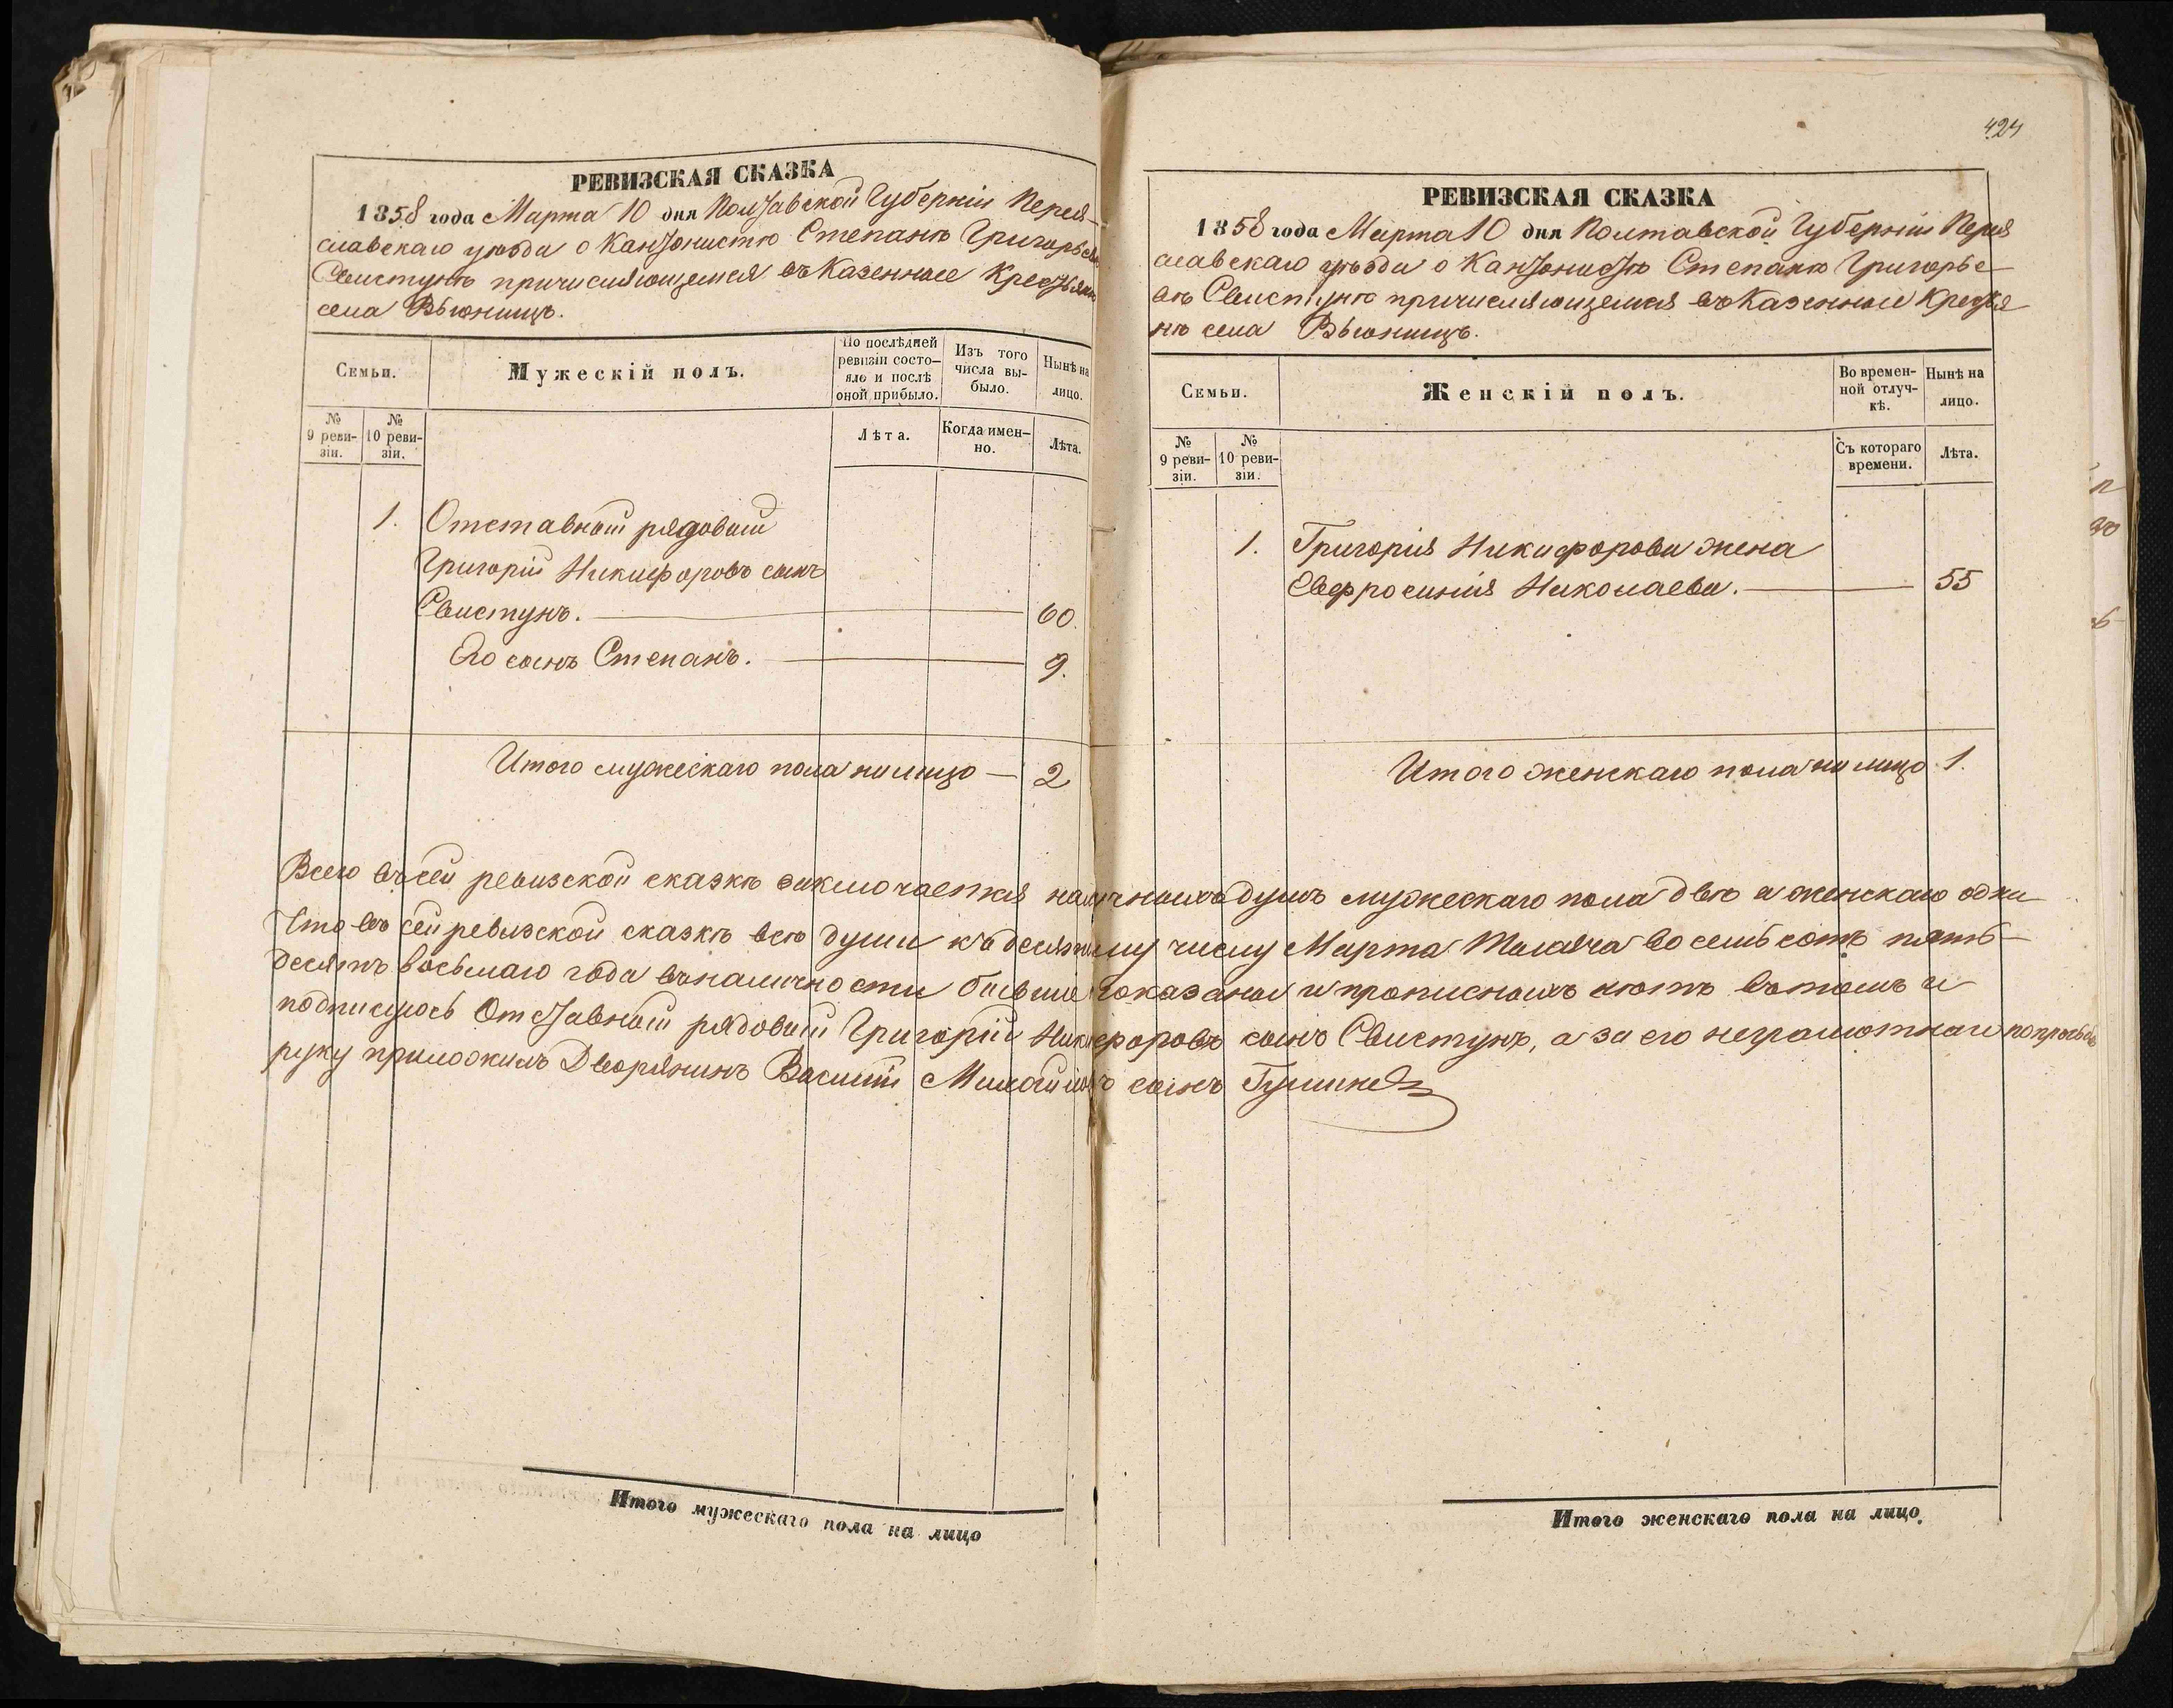 РЕВИЗСКАЯ СКАЗКА
1858 года Марта 10 дня Полтавской Губерніи Перея-
славскаго уѣзда о Кантонистѣ Степанѣ Григорьевѣ
Свистунѣ причисляющемся въ Казенные Крестьяне
села Вьюнищъ.
Семьи.
Мужескій полъ.
По послѣдней ревизіи состо-яло и послѣ оной прибыло.
Изъ того числа вы-было.
Нынѣ на лицо.
№ 9 реви-зіи.
№ 10 реви-зіи.
Лѣта.
Когда имен-но.
Лѣта.
1. Отставный рядовый
Григорій Никифоровъ сынъ
Свистунъ. 60.
Его сынъ Степанъ. 9.
Итого мужескаго пола на лицо — 2
Итого мужескаго пола на лицо
424
РЕВИЗСКАЯ СКАЗКА
1858 года Марта 10 дня Полтавской Губерніи Перея
славскаго уѣзда о Кантонистѣ Степанѣ Григорье-
вѣ Свистунѣ причисляющемся въ Казенные Крестья
нѣ села Вьюнищъ.
Семьи.
Женскій полъ.
Во времен-ной отлуч-кѣ.
Нынѣ на лицо.
№ 9 реви-зіи.
№ 10 реви-зіи.
Съ котораго времени.
Лѣта.
1. Григорія Никифорова жена
Евфросинія Николаева. 55
Итого женскаго пола на лицо 1.
Всего въ сей ревизской сказкѣ заключается наличныхъ душъ мужескаго пола двѣ а женскаго одна
Что въ сей ревизской сказкѣ всѣ души къ десятому числу Марта Тысяча восемьсотъ пять-
десятъ восьмаго года въ наличности бывше показаны и прописныхъ нѣтъ въ томъ и
подписуюсь Отставный рядовый Григорій Никифоровъ сынъ Свистунъ, а за его неграмотнаго по прозьбѣ
руку приложилъ Дворянинъ Василій сынъ
Итого женскаго пола на лицо.